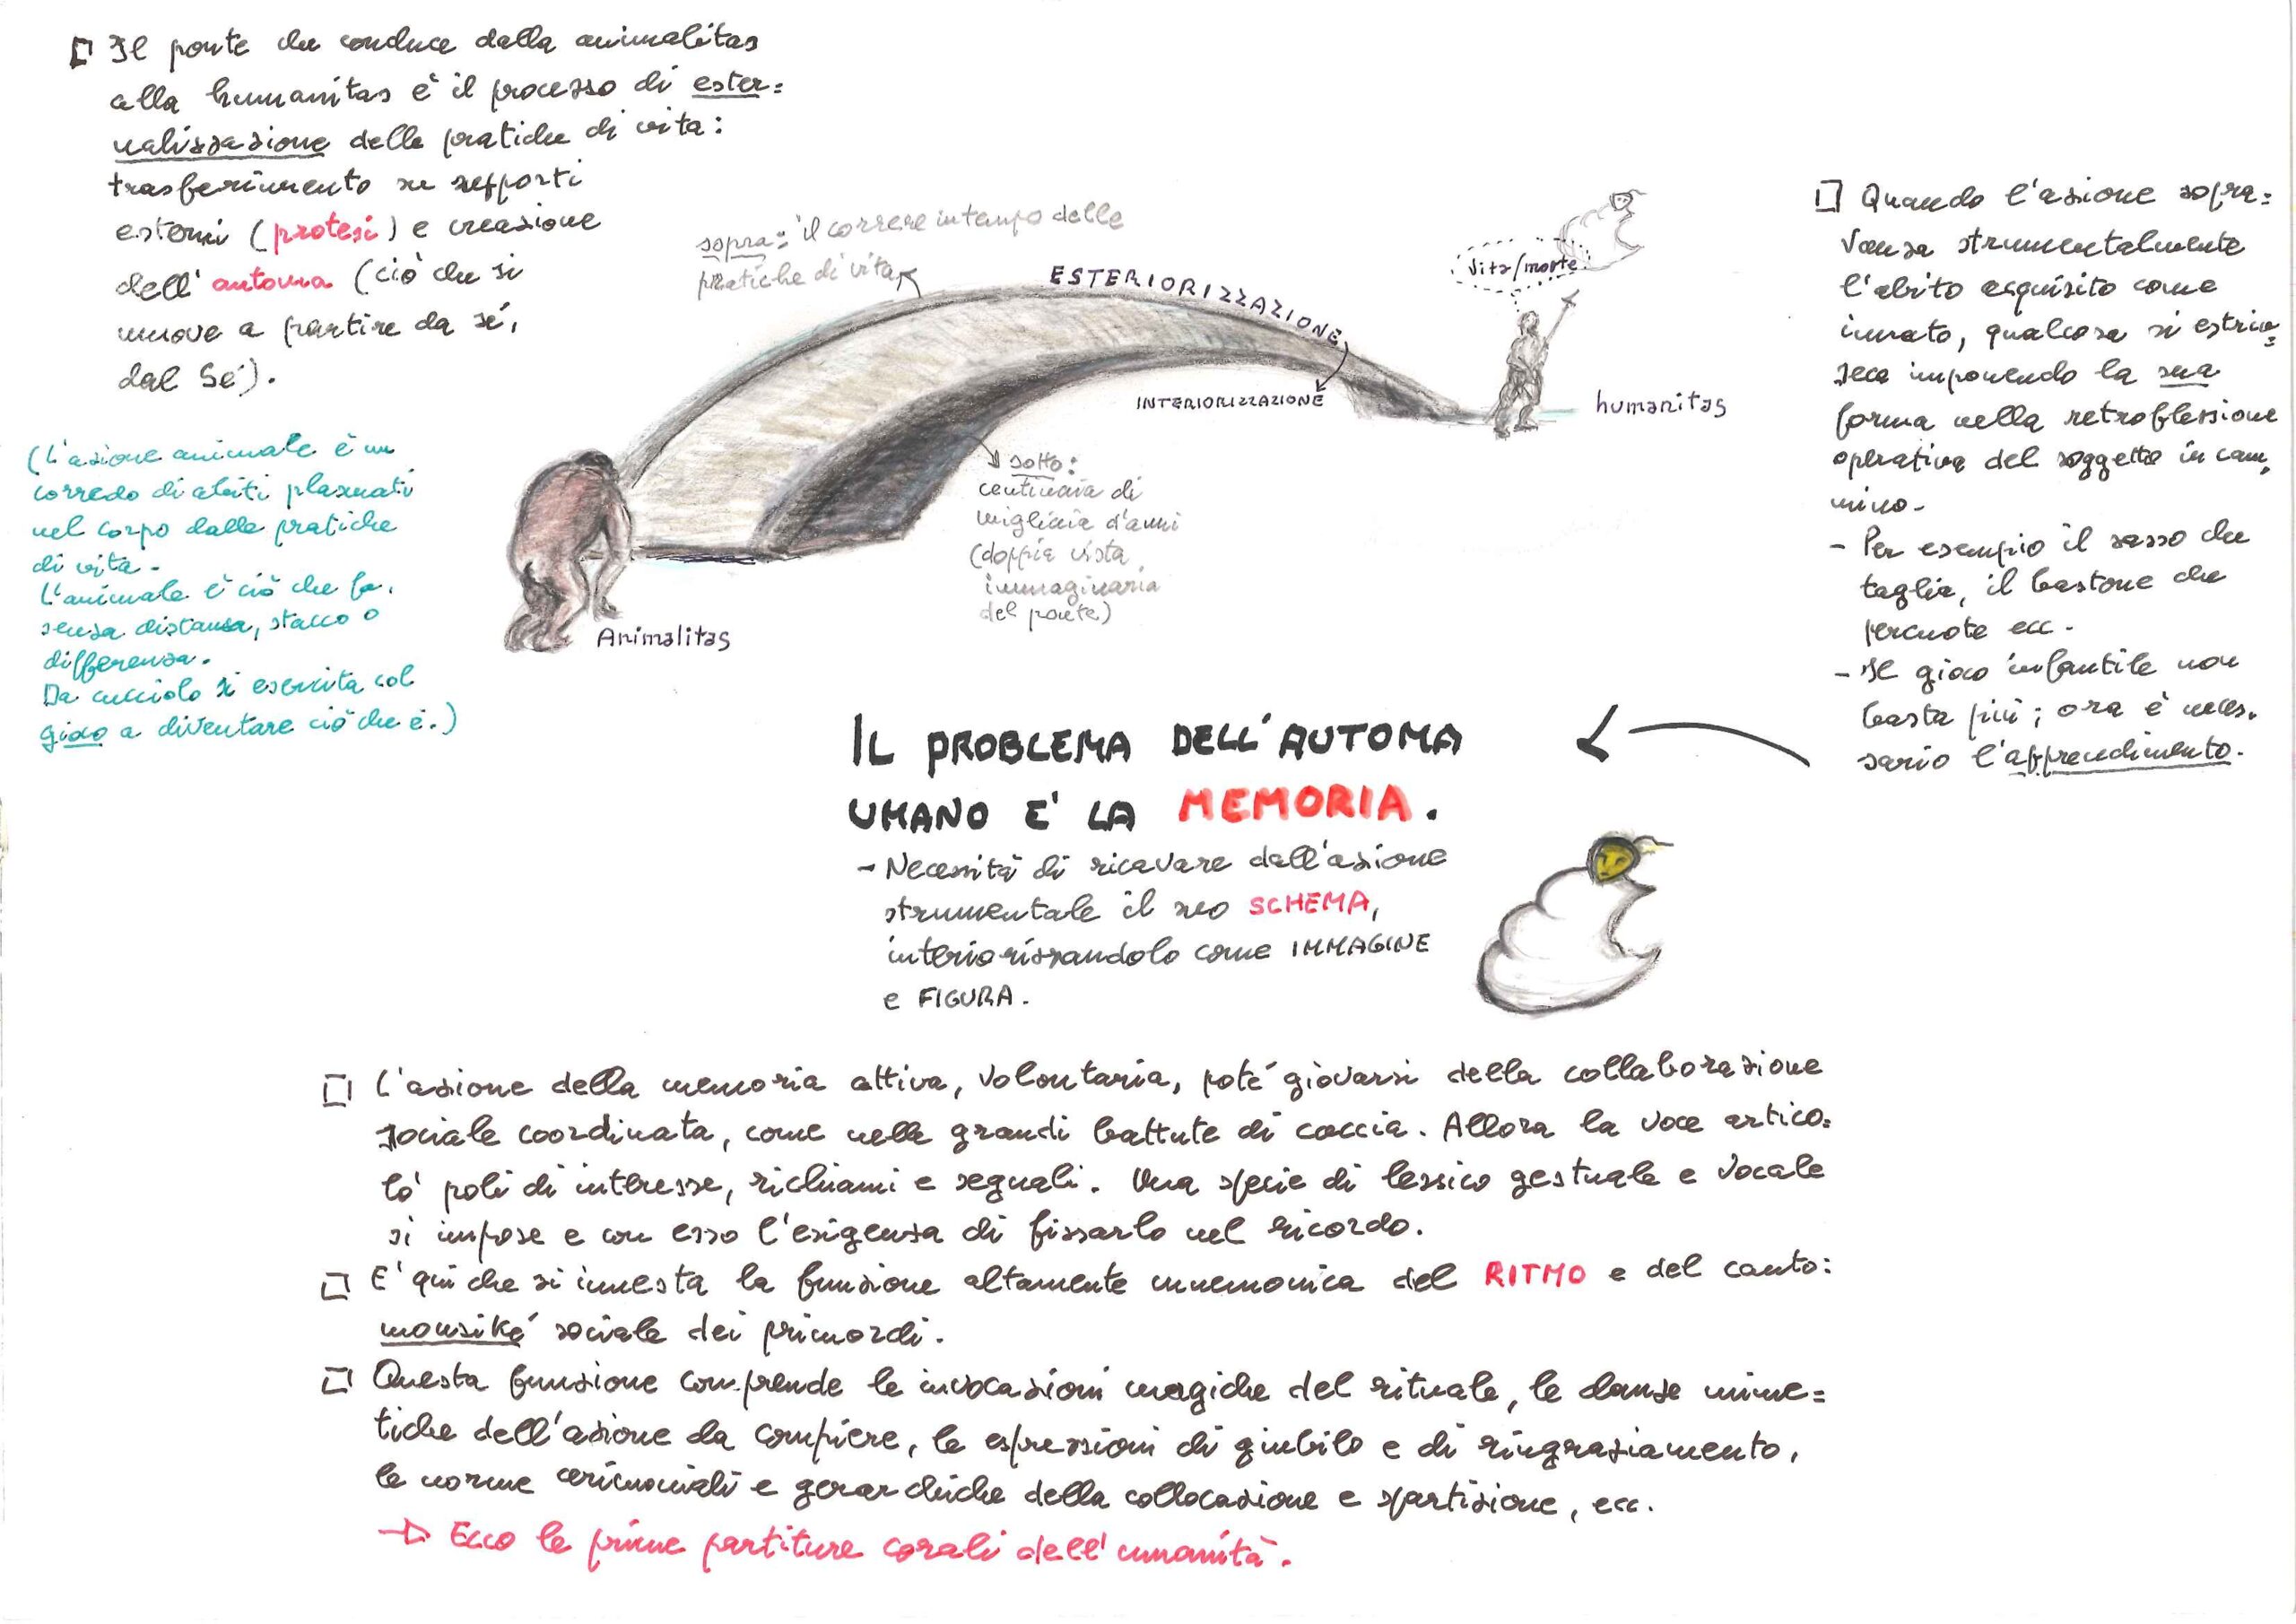 Il ponte che conduce dalla animalitas
alla humanitas è il processo di ester=
nalizzazione delle pratiche di vita:
trasferimento su supporti
esterni (protesi) e creazione
dell'automa (ciò che si
muove a partire da sé,
dal Sé).
(L'azione animale è un
corredo di abiti plasmati
nel corpo dalle pratiche
di vita.
L'animale è ciò che fa,
senza distanza, stacco o
differenza.
Da cucciolo si esercita col
gioco a diventare ciò che è.)
sopra: il correre in tempo delle
pratiche di vita
ESTERIORIZZAZIONE
INTERIORIZZAZIONE
sotto:
centinaia di
migliaia d'anni
(doppia vista
immaginaria
del ponte)
Animalitas
vita/morte
humanitas
Quando l'azione sopra=
vanza strumentalmente
l'abito acquisito come
innato, qualcosa si estrin=
seca imponendo la sua
forma nella retroflessione
operativa del soggetto in cam,
mino.
- Per esempio il sasso che
taglia, il bastone che
percuote ecc.
- Il gioco infantile non
basta più; ora è neces.
sario l'apprendimento.
IL PROBLEMA DELL'AUTOMA
UMANO E' LA MEMORIA.
- Necessità di ricavare dall'azione
strumentale il suo SCHEMA,
interiorizzandolo come IMMAGINE
e FIGURA.
L'azione della memoria attiva, volontaria, poté giovarsi della collaborazione
sociale coordinata, come nelle grandi battute di caccia. Allora la voce artico=
lò poli di interesse, richiami e segnali. Una specie di lessico gestuale e vocale
si impose e con esso l'esigenza di fissarlo nel ricordo.
E' qui che si innesta la funzione altamente mnemonica del RITMO e del canto:
mousiké sociale dei primordi.
Questa funzione comprende le invocazioni magiche del rituale, le danze mime=
tiche dell'azione da compiere, le espressioni di giubilo e di ringraziamento,
le norme cerimoniali e gerarchiche della collocazione e spartizione, ecc.
→ Ecco le prime partiture corali dell'umanità.